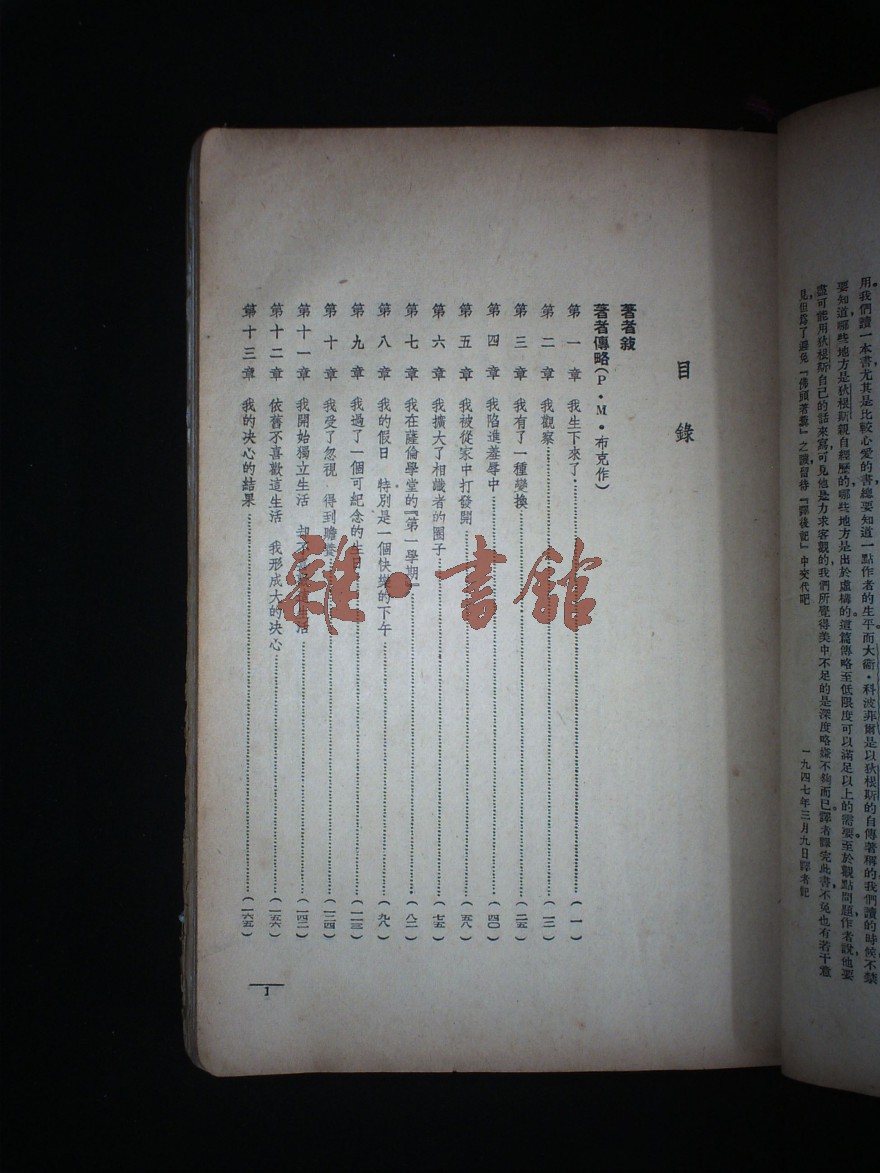 用。我們讀一本書，尤其是比較心愛的書，總要知道一點作者的生平。而大衛·科波菲爾是以狄根斯的自傳著稱的，我們讀的時候不禁
要知道，哪些地方是狄根斯親自經歷的，哪些地方是出於虛構的。這篇傳略至低限度可以滿足以上的需要。至於觀點問題，作者說他要
盡可能用狄根斯自己的話來寫，可見他是力求客觀的。我們所覺得美中不足的是深度略嫌不夠而已。譯者譯完此書，不免也有若干意
見，但爲了避免『佛頭著糞』之譏，留待『譯後記』中交代吧
一九四七年三月九日譯者記
目錄
著者敍
著者傳略(P·M·布克作)
第一章 我生下來了 (一)
第二章 我觀察 (一三)
第三章 我有了一種變換 (二五)
第四章 我陷進羞辱中 (四〇)
第五章 我被從家中打發開 (五八)
第六章 我擴大了相識者的圈子 (七五)
第七章 我在薩倫學堂的『第一學期』 (八二)
第八章 我的假日 特別是一個快樂的下午 (九八)
第九章 我過了一個可紀念的生日 (一一三)
第十章 我受了忽視 得到贍養 (一二四)
第十一章 我開始獨立生活 却不 生活 (一四二)
第十二章 依舊不喜歡這生活 我形成大的决心 (一五六)
第十三章 我的决心的結果 (一六五)
1
雜·書館